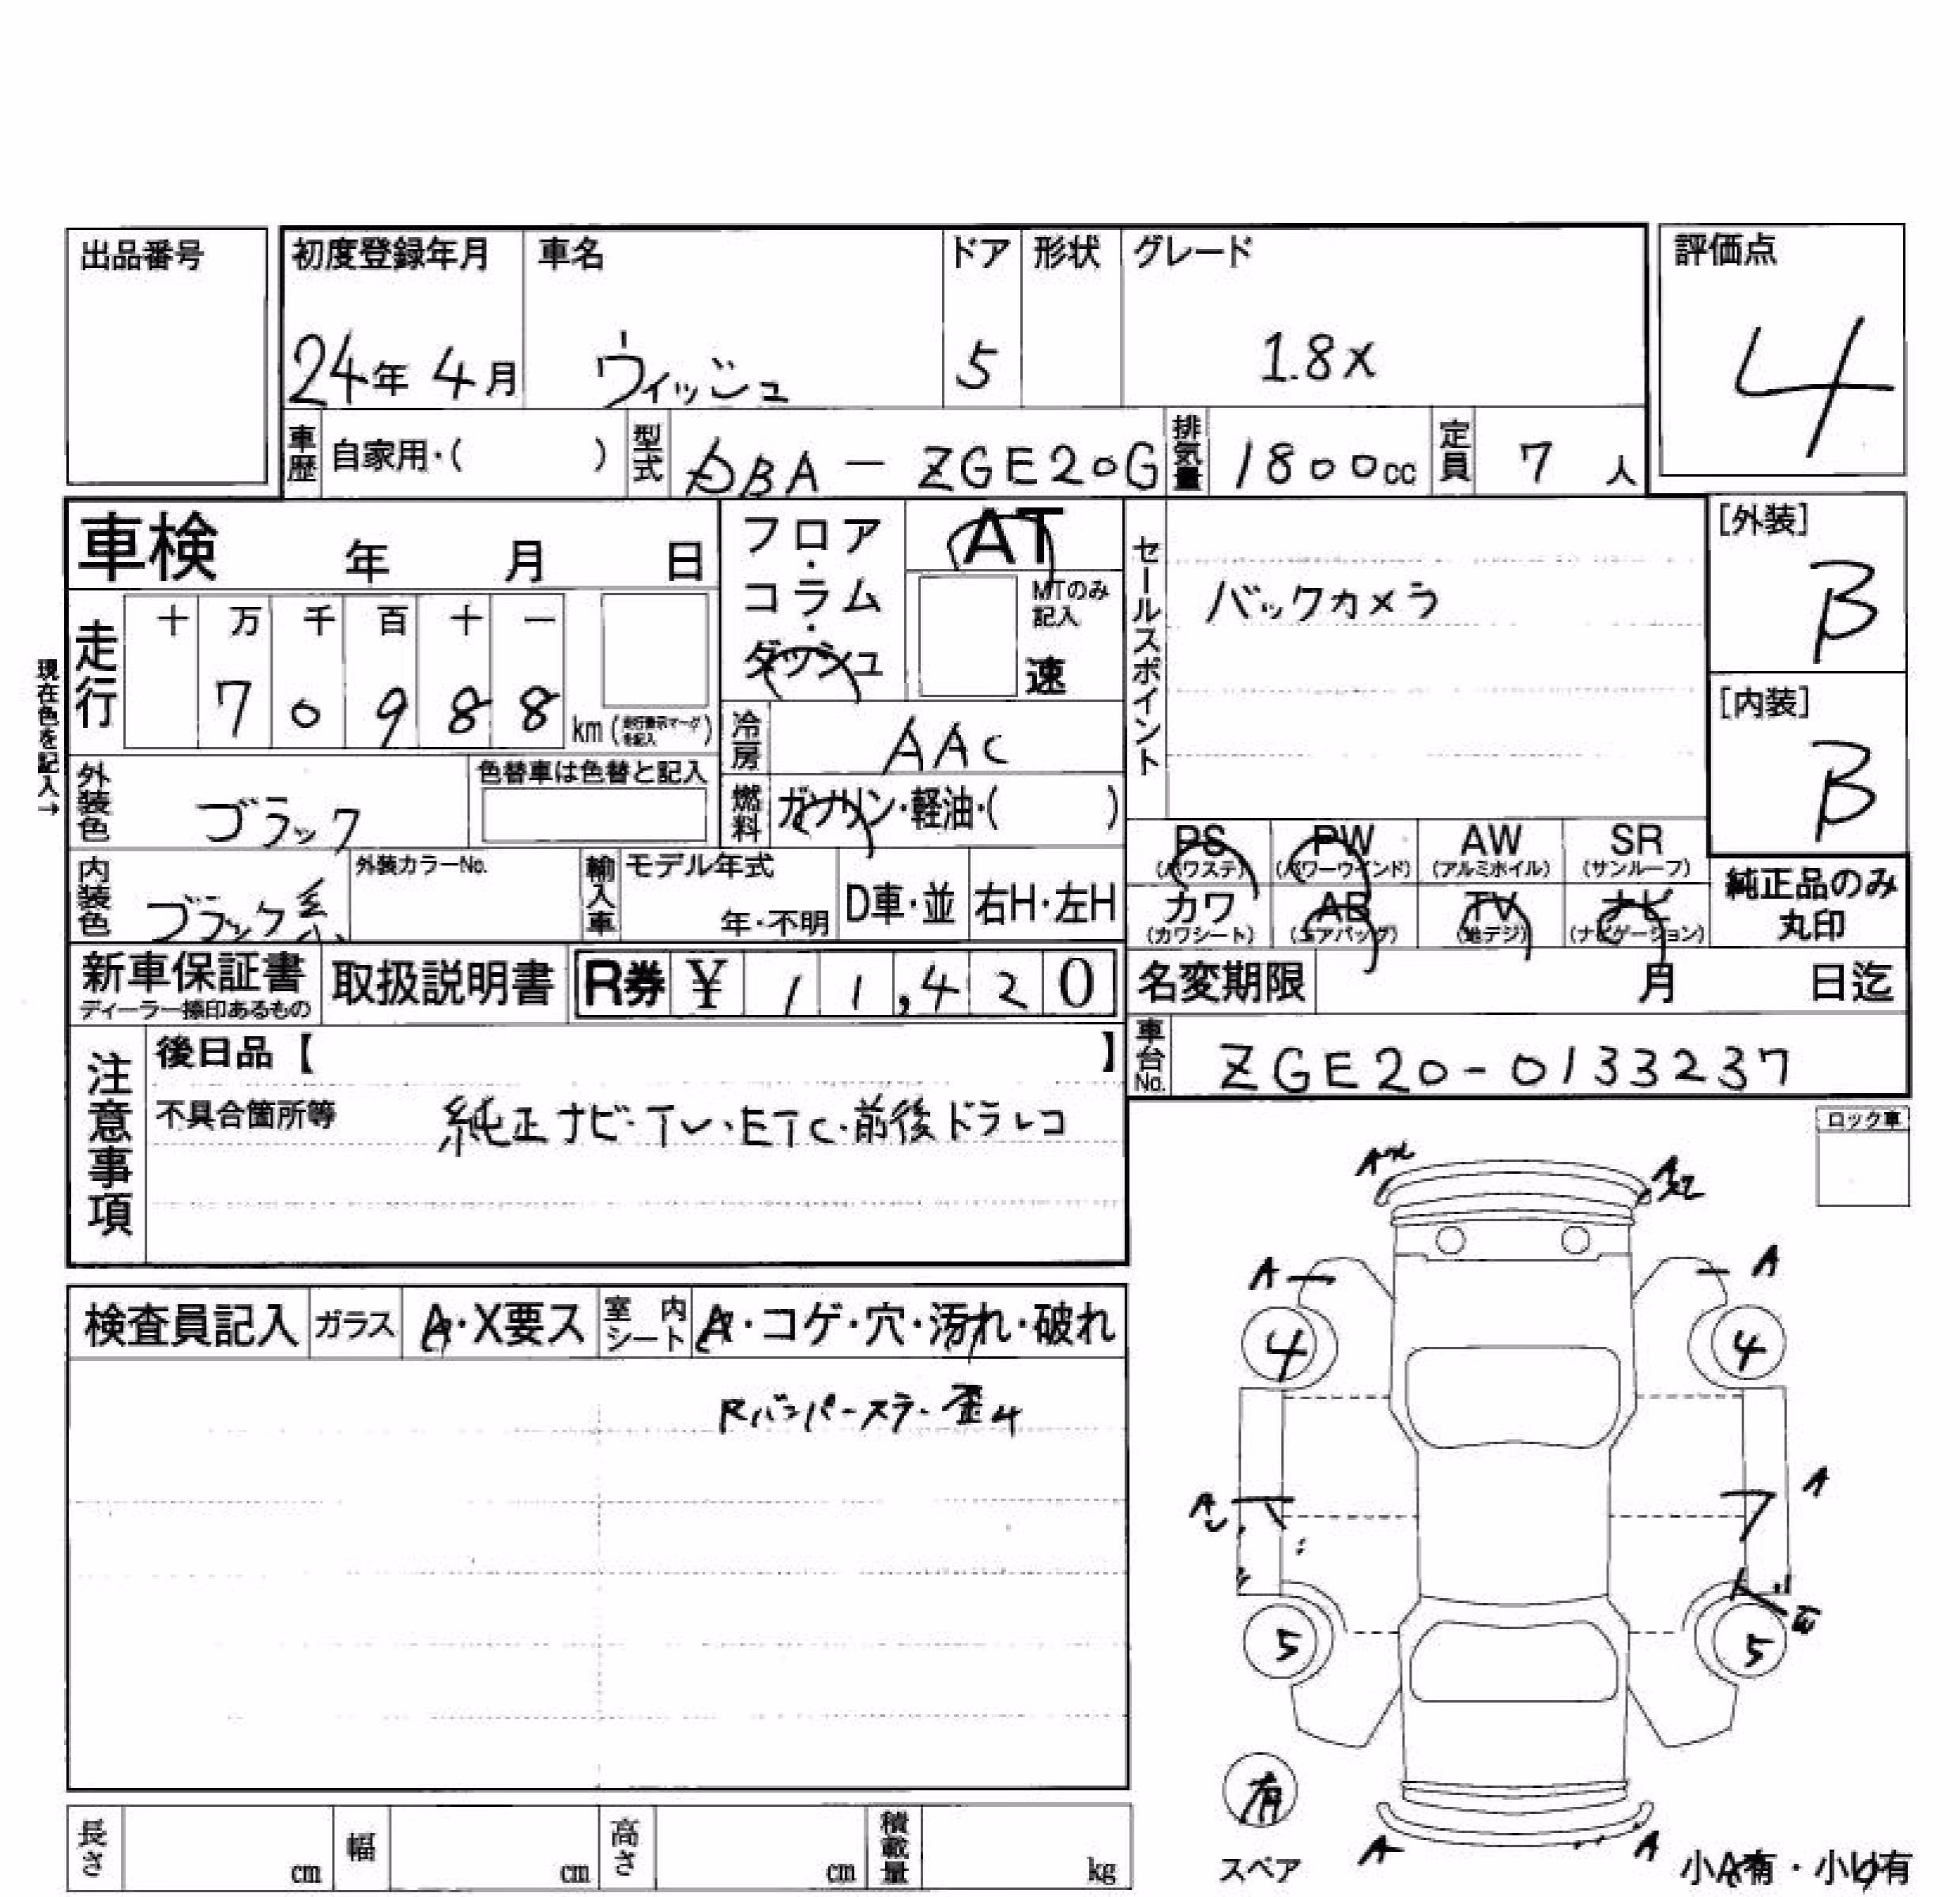 出品番号 初度登録年月 車名 ドア 形状 グレード 評価点
24年 4月 ウィッシュ 5 1.8X 4
車歴 自家用・( ) 型式 DBA-ZGE20G 排気量 1800cc 定員 7人
車検 年 月 日
フロア・コラム・ダッシュ
AT
MTのみ記入
速
セールスポイント
バックカメラ
[外装]
B
[内装]
B
現在色を記入→
走行 十 万 千 百 十 一
7 0 9 8 8 km(走行表示マークを記入)
冷房 AAC
外装色 ブラック 色替車は色替と記入
燃料 ガソリン・軽油・( )
PS (パワステ) PW (パワーウインド) AW (アルミホイル) SR (サンルーフ)
カワ (カワシート) AB (エアバッグ) TV (地デジ) ナビ (ナビゲーション)
純正品のみ丸印
内装色 ブラック系 外装カラーNo. 輸入車 モデル年式 年・不明 D車・並 右H・左H
新車保証書 ディーラー捺印あるもの 取扱説明書 R券 ¥ 11,420
名変期限 月 日迄
車台No. ZGE20-0133237
注意事項
後日品【 】
不具合箇所等 純正ナビ・TV・ETC・前後ドラレコ
ロック車
検査員記入 ガラス A・X要ス 室内シート A・コゲ・穴・汚れ・破れ
Rバンパースラ・歪4
A
A A
4 4
A
A
5 5
有
スペア
A A
小A有・小U有
長さ cm 幅 cm 高さ cm 積載量 kg